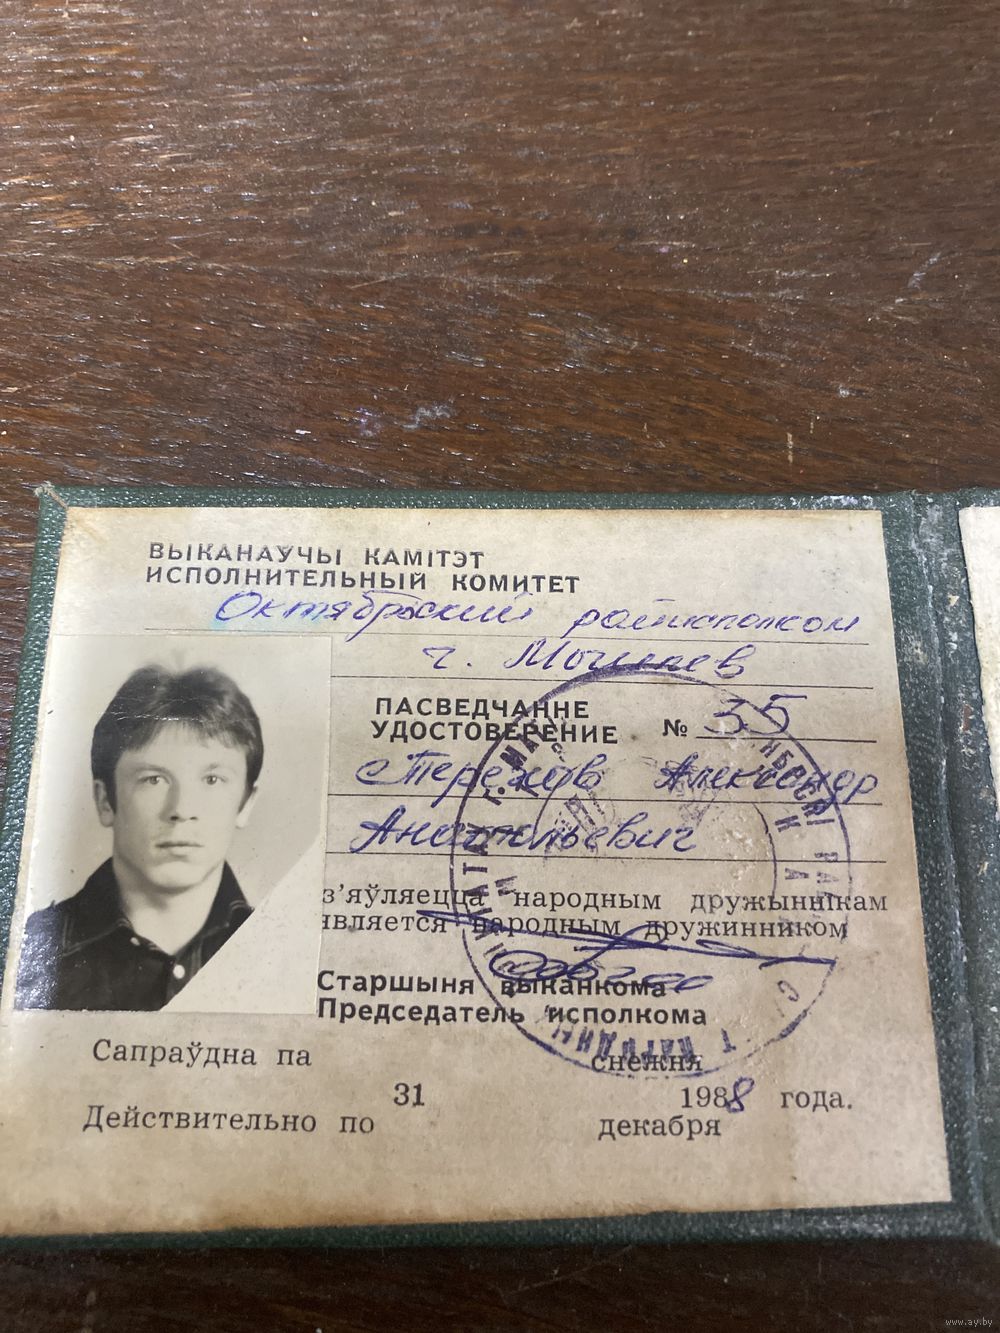 ВЫКАНАЎЧЫ КАМІТЭТ
ИСПОЛНИТЕЛЬНЫЙ КОМИТЕТ
Октябрьский райисполком
г. Могилев
ПАСВЕДЧАННЕ
УДОСТОВЕРЕНИЕ № 35
Терехов Александр
Анатольевич
з'яўляецца народным дружыннікам
является народным дружинником
Старшыня выканкома
Председатель исполкома
Сапраўдна па 31 снежня 1988 года.
Действительно по декабря
www.ay.by